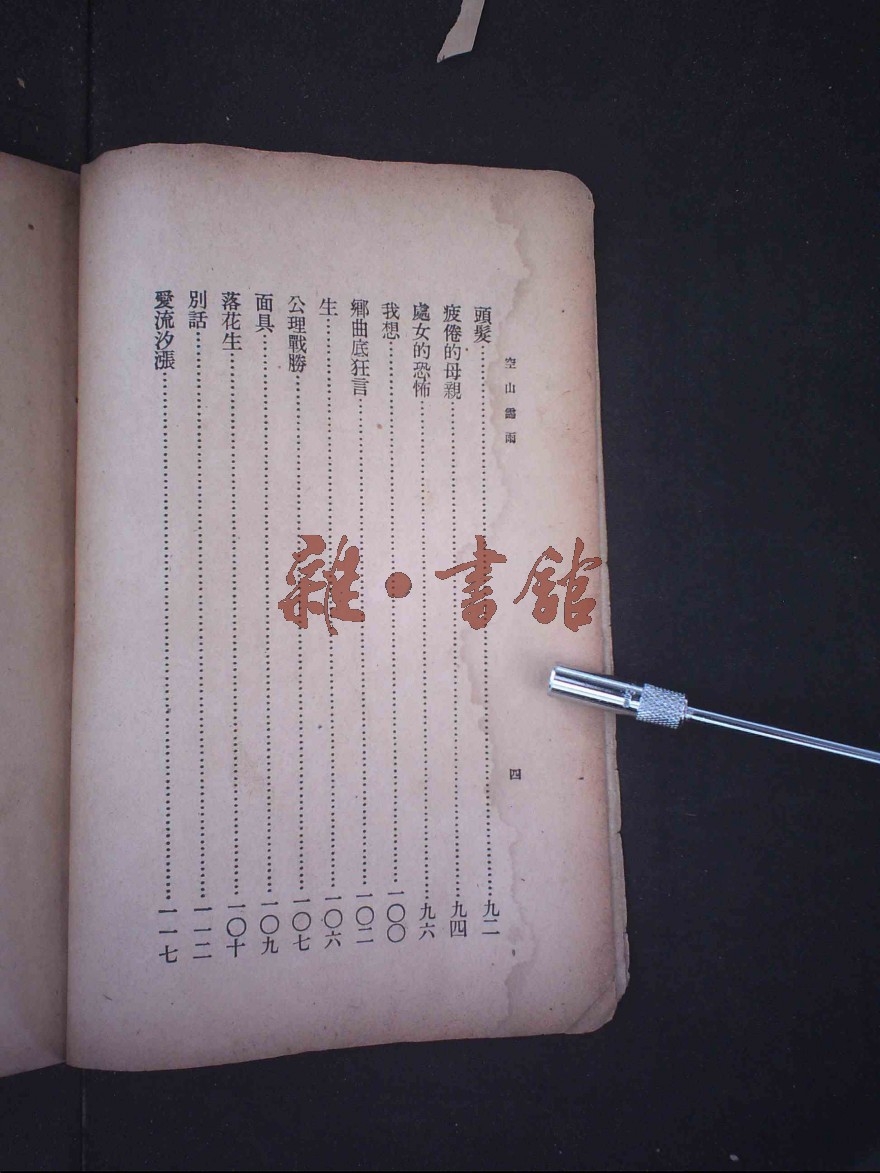 空山靈雨
四
頭髮……九二
疲倦的母親……九四
處女的恐怖……九六
我想……一〇〇
鄉曲底狂言……一〇二
生……一〇六
公理戰勝……一〇七
面具……一〇九
落花生……一〇十
別話……一一二
愛流汐漲……一一七
雜·書館